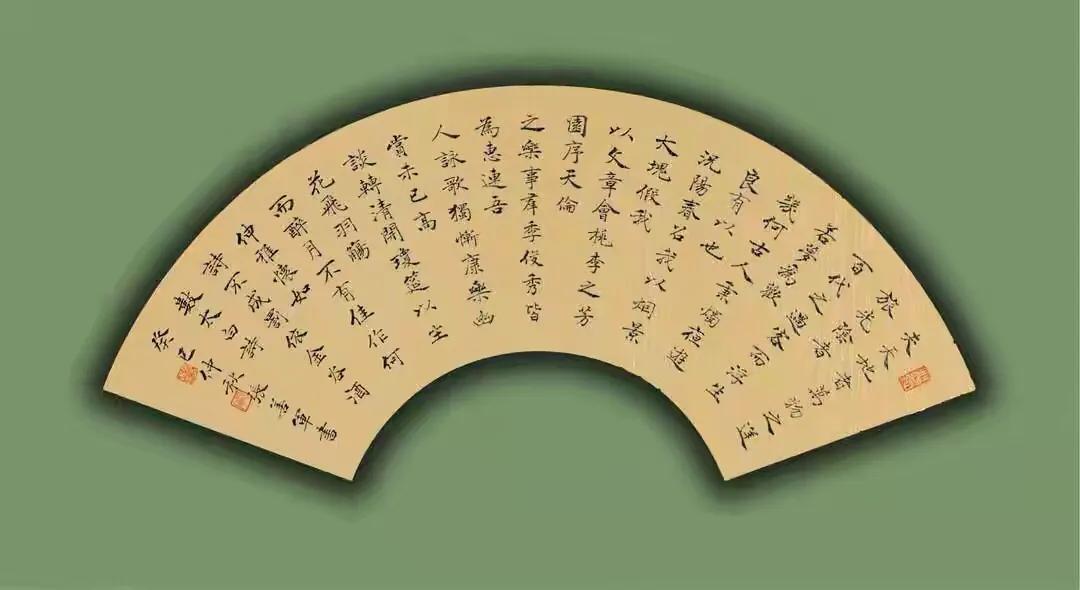 夫天地者萬物之逆
旅光陰者
百代之過客而浮生
若夢為歡
幾何古人秉燭夜遊
良有以也
況陽春召我以烟景
大塊假我
以文章會桃李之芳
園序天倫
之樂事羣季俊秀皆
為惠連吾
人詠歌獨慚康樂幽
賞未已高
談轉清開瓊筵以坐
花飛羽觴
而醉月不有佳作何
伸雅懷如
詩不成罰依金谷酒
數太白詩
癸巳仲秋張善軍書